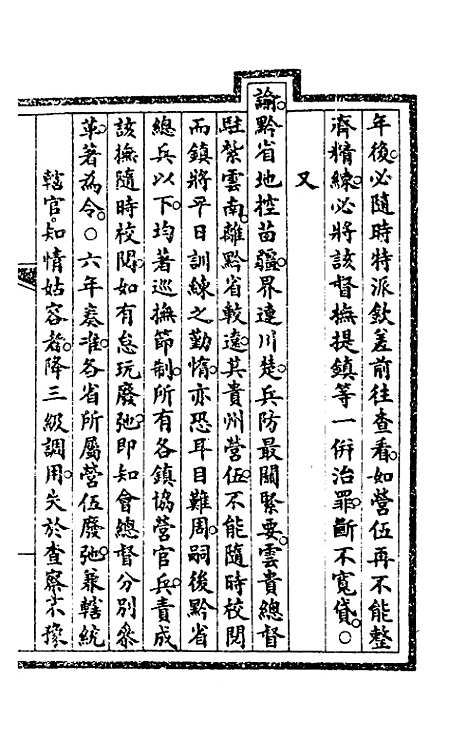 年後必隨時特派欽差前往查看。如營伍再不能整
濟精練。必將該督撫提鎮等一併治罪。斷不寬貸。○
又
諭。黔省地控苗疆。界連川楚。兵防最關緊要。雲貴總督
駐紮雲南。離黔省較遠。其貴州營伍。不能隨時校閱。
而鎮將平日訓練之勤惰。亦恐耳目難周。嗣後黔省
總兵以下。均著巡撫節制。所有各鎮協營官兵。責成
該撫隨時校閱。如有怠玩廢弛。即知會總督分別叅
革。著為令。○六年奏准。各省所屬營伍廢弛。兼轄統
轄官。知情姑容者。降三級調用。失於查察。不豫